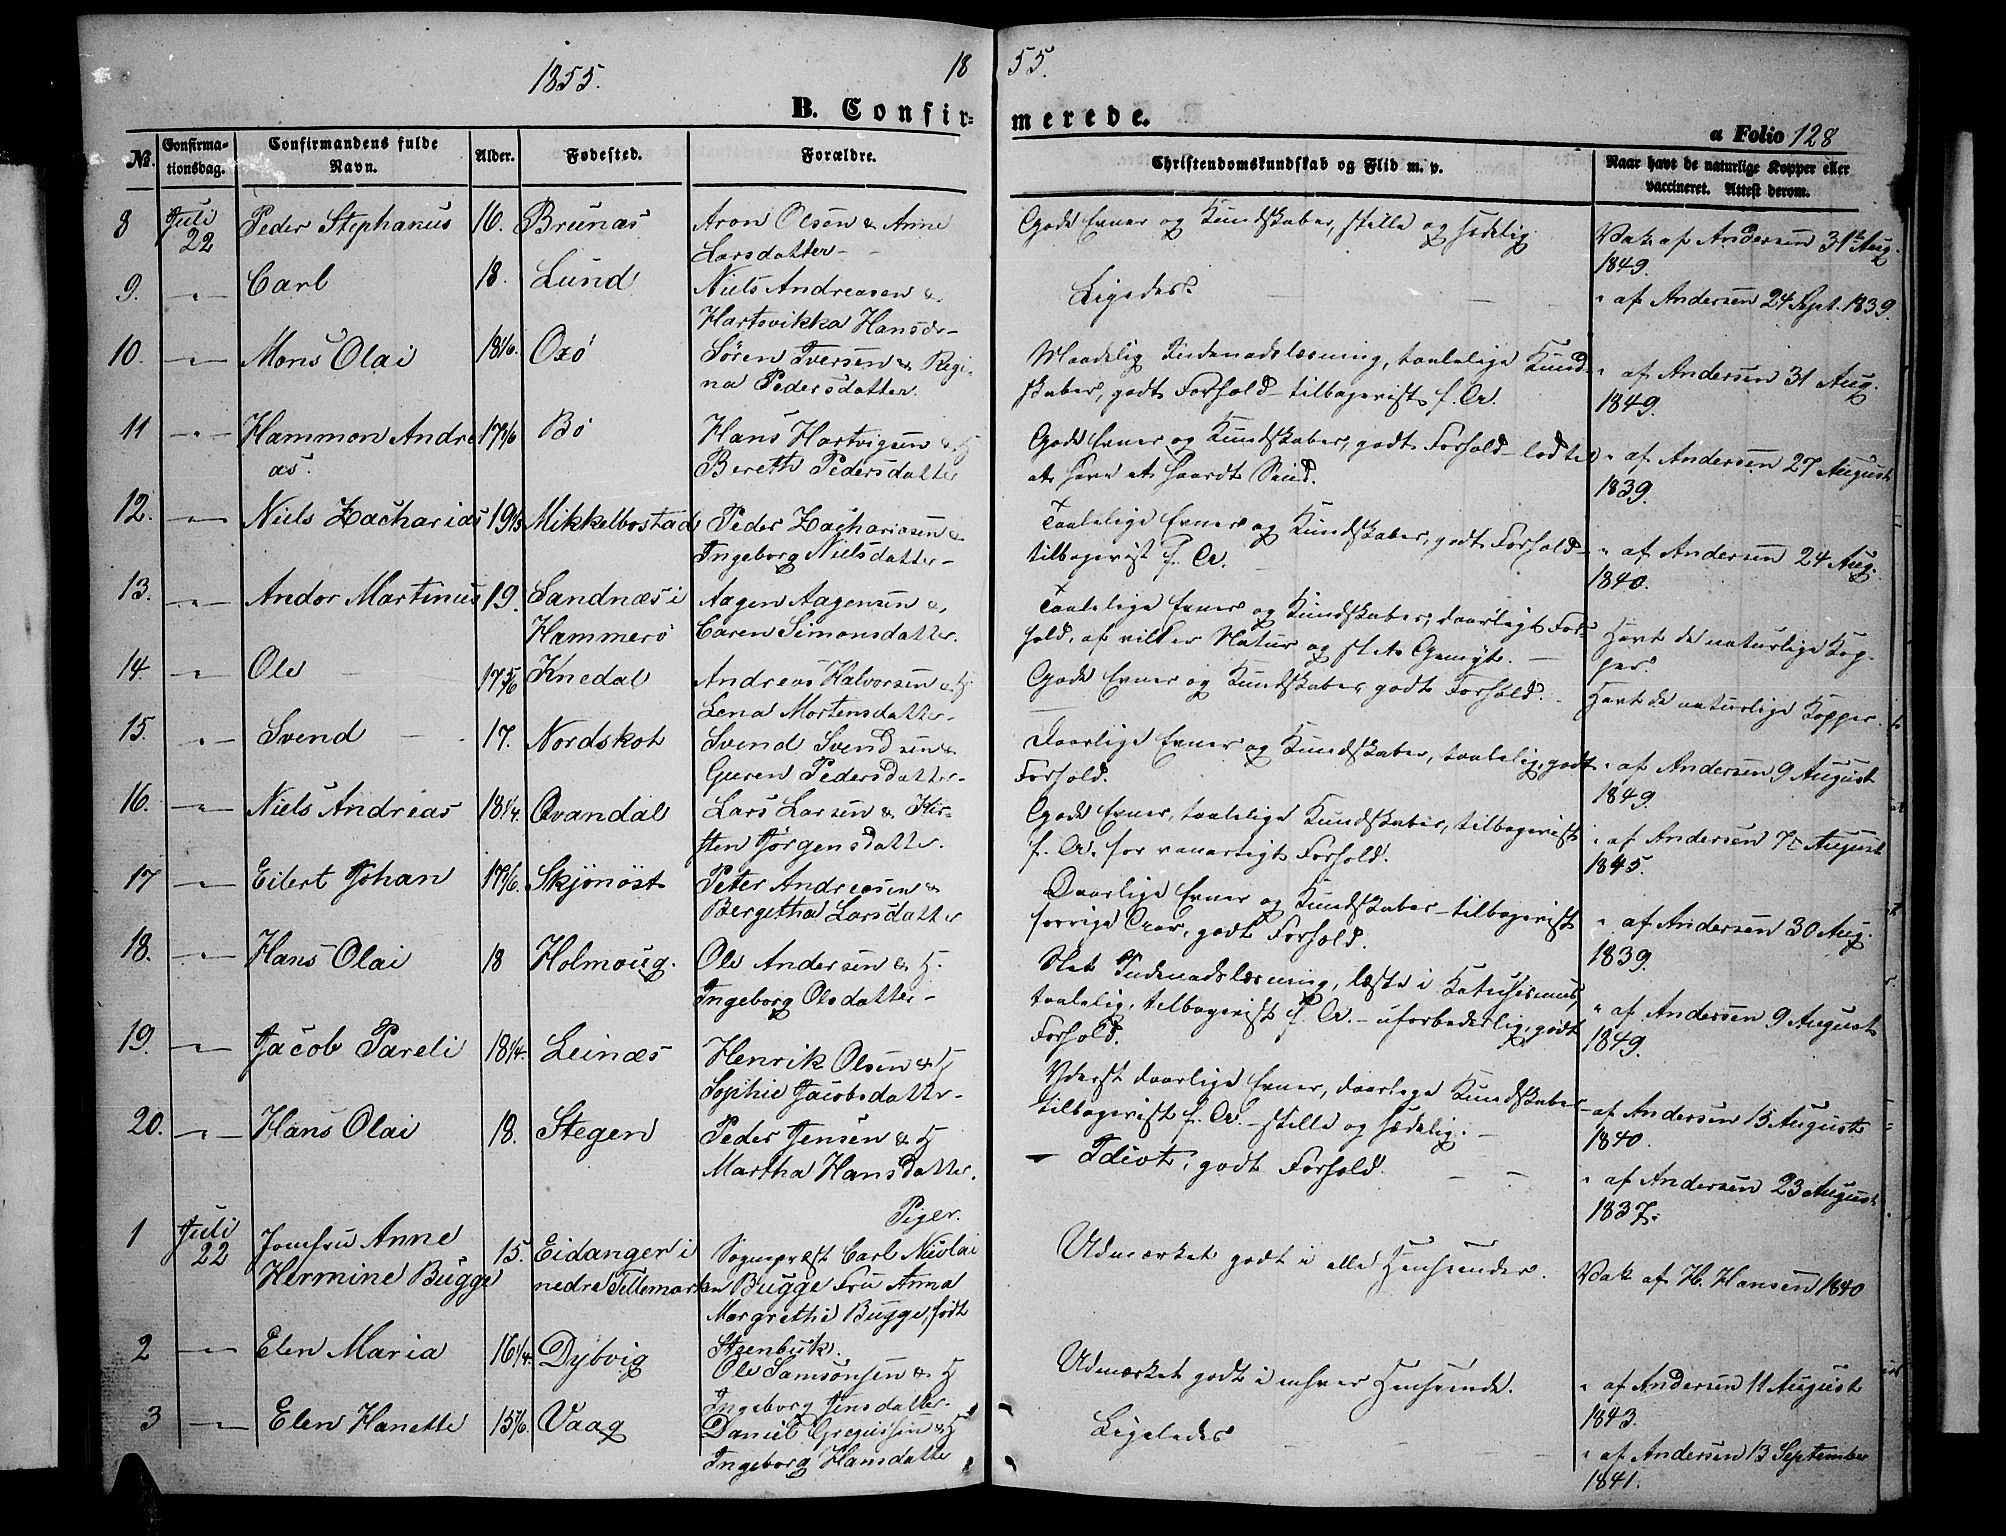 1855.
18 55.
B. Confir= merede.
a Folio 128
No.
Confirma-
tionsdag.
Confirmandens fulde
Navn.
Alder.
Fødested.
Forældre.
Christendomskundskab og Flid m. v.
Naar havt de naturlige Kopper eller
vaccineret. Attest derom.
8 Juli 22 Peder Stephanus 16. Brunæs Aron Olsen & Anne
Larsdatter
Gode Evner og Kundskaber, stille og sædelig.
Vak af Andersen 31te Aug.
1849.
9. -"- Carl 18. Lund Niels Andreasen &
Hartvikka Hansdr-
Ligedes.
" af Andersen 24 Sept. 1839.
10. -"- Mons Olai 18 1/6. Oxö Sören Iversen & Regi-
na Pedersdatter.
Maadelig Indenadslæsning, taalelige Kund-
skaber, godt Forhold - tilbageviist f. A.
" af Andersen 31 Aug.
1849.
11 -"- Hammon Andre
as. 17 1/6 Bö Hans Hartvigsen & H
Bereth Pedersdatter
Gode Evner og Kundskaber, godt Forhold
at have et haardt Sind.
" af Andersen 27 August
1839.
12. -"- Niels Zacharias 19 1/3 Mikkelbostad Peder Zachariasen &
Ingeborg Nielsdatter-
Taalelige Evner og Kundskaber, godt Forhold-
tilbageviist f. A.
" af Andersen 24 Aug.
1840.
13. -"- Andor Martinus 19. Sandnæs i
Hammerö
Aagen Aagensen &
Caren Simonsdatter.
Taalelige Evner og Kundskaber, daarligt For-
hold, af vild Natur og Gemyt.
Havt de naturlige Kop-
per.
14. -"- Ole 17 5/6 Knedal Andreas Halvorsen & H.
Lena Mortensdatter-
Gode Evner og Kundskaber godt Forhold.
Havt de naturlige Kopper.
15. -"- Svend 17. Nordskot Svend Svendsen &
Guren Pedersdatter-
Daarlige Evner og Kundskaber, taalelig, godt
Forhold.
" af Andersen 9 August
1849.
16. -"- Niels Andreas 18 1/4. Qvandal Lars Larsen & Kir-
sten Jörgensdatter.
Gode Evner, taalelige Kundskaber, tilbageviist
f. A. for vanartigt Forhold.
" af Andersen 7de August
1845.
17 -"- Eilert Johan 17 1/6. Skjönöst Peter Andreasen &
Bergetha Larsdatter
Daarlige Evner og Kundskaber - tilbageviist
forrige Aar, godt Forhold.
" af Andersen 30 Aug.
1839.
18. -"- Hans Olai 18 Holmoug. Ole Andersen & H.
Ingeborg Olsdatter-
Slet Indenadslæsning, læste i Katechismus,
taalelig, tilbageviist f. A. - uforbederlig, godt
Forhold.
" af Andersen 9 August
1849.
19. -"- Jacob Pareli 18 1/4. Leinæs Henrik Olsen & H
Sophie Jacobsdatter-
Yderst daarlige Evner, daarlige Kundskaber
tilbageviist f. A. - stille og sædelig.
af Andersen 15 August
1840.
20. -"- Hans Olai 18. Stegen Peder Jensen & H
Martha Hansdatter.
- Idiot, godt Forhold.
" af Andersen 23 August
1837.
Piger.
1 Juli 22 Jomfru Anne
Hermine Bugge 15. Eidanger i
nedre Tellemarken
Sognepræst Carl Nicolai
Bugge Fru Anna
Margrethe Bugge, født
Steenbuk.
Udmærket godt i alle Henseender.
Vak af H. Hansen 1840
2 -"- Elen Maria 16 1/4. Dybvig Ole Samsonsen & H
Ingeborg Jensdatter.
Udmærket godt i enhver Henseende.
" af Andersen 11 August
1843.
3 -"- Elen Hanette 15 5/6. Vaag Daniel Gregussen & H
Ingeborg Hansdatter
Ligeledes
" af Andersen 13 September
1841.